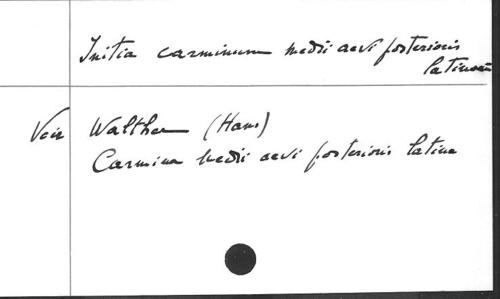 Initia carminum medii aevi posterioris
latinorum
Voir Walther (Hans)
Carmina medii aevi posterioris latina